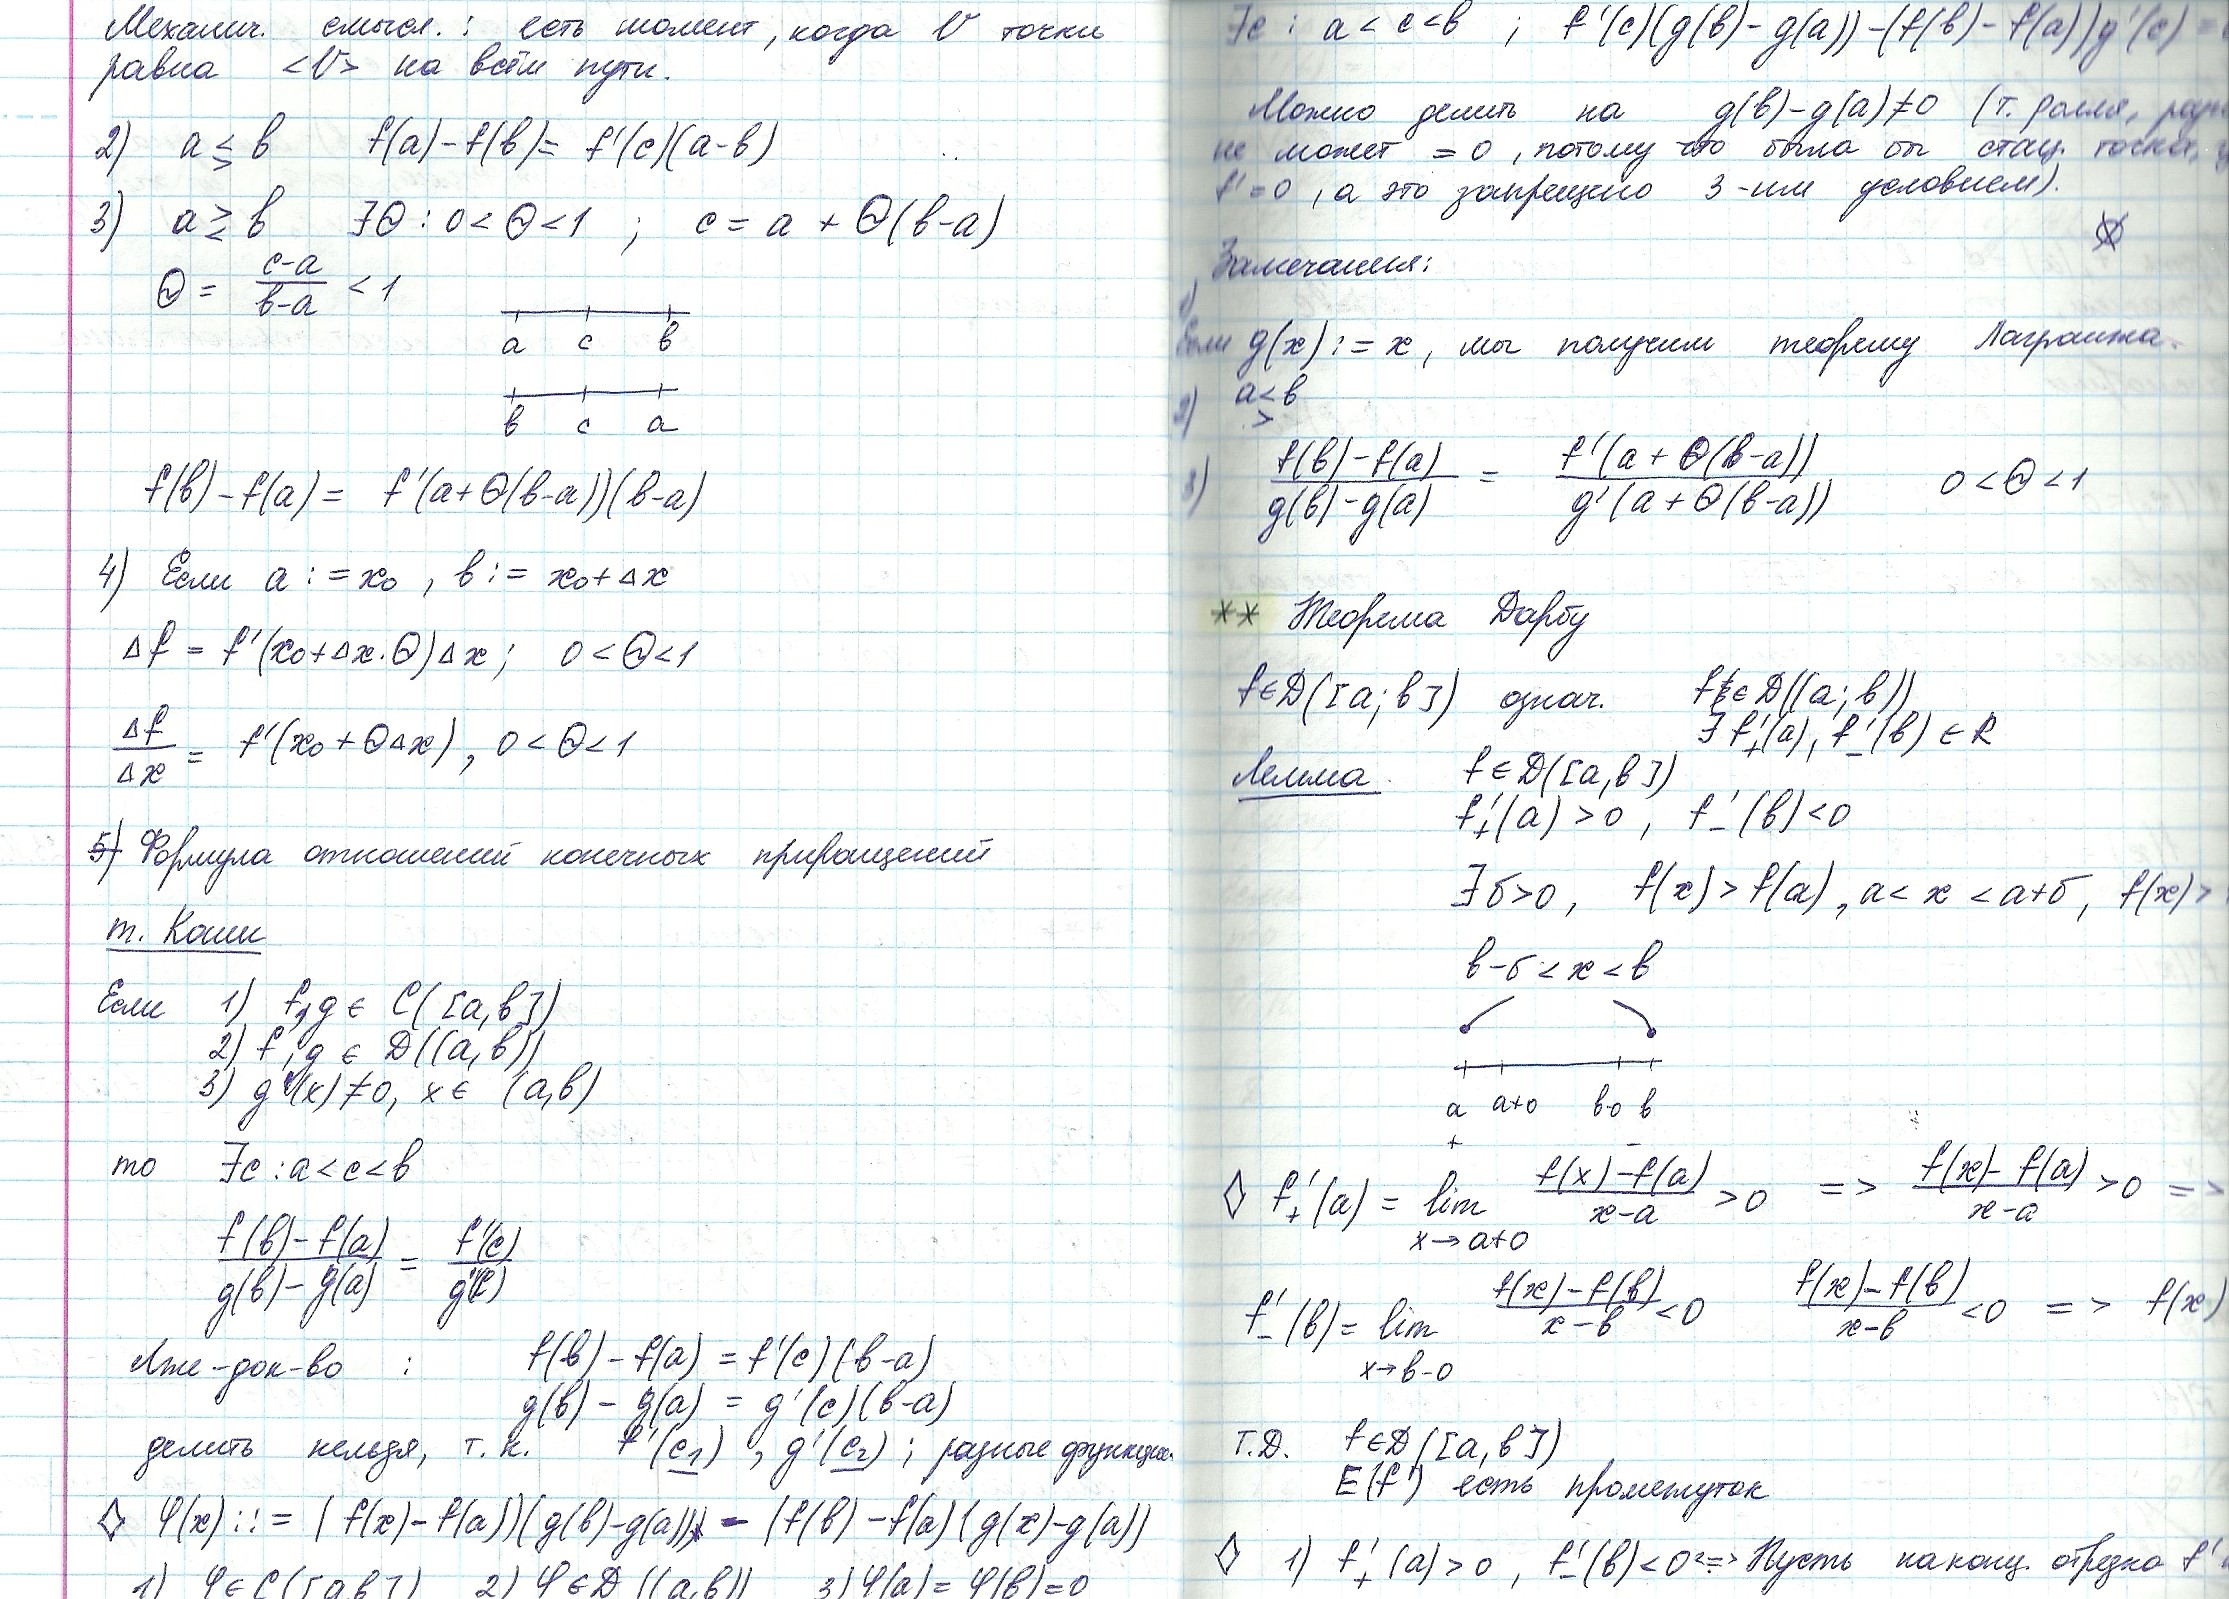 Механич. смысл. : есть момент, когда V точки
равна <V> на всём пути.
2) a ≤ b f(a)-f(b)= f'(c)(a-b)
3) a ≥ b ∃Θ : 0<Θ<1 ; c = a + Θ(b-a)
Θ = (c-a)/(b-a) < 1
a c b
b c a
f(b)-f(a)= f'(a+Θ(b-a))(b-a)
4) Если a := x₀ , b := x₀+Δx
Δf = f'(x₀+Δx·Θ)Δx ; 0<Θ<1
Δf/Δx = f'(x₀+ΘΔx) , 0<Θ<1
5) Формула отношений конечных приращений
т. Коши
Если 1) f,g ∈ C([a,b])
2) f,g ∈ D((a,b))
3) g'(x)≠0, x∈ (a,b)
то ∃c : a<c<b
(f(b)-f(a))/(g(b)-g(a)) = f'(c)/g'(c)
Лже-док-во : f(b)-f(a) = f'(c)(b-a)
g(b)-g(a) = g'(c)(b-a)
делить нельзя, т.к. f'(c₁) , g'(c₂) ; разные функции.
◊ φ(x) ::= (f(x)-f(a))(g(b)-g(a)) - (f(b)-f(a)(g(x)-g(a))
1) φ∈C([a,b]) 2) φ∈D((a,b)) 3) φ(a)=φ(b)=0
∃c : a<c<b ; f'(c)(g(b)-g(a))-(f(b)-f(a))g'(c) =
Можно делить на g(b)-g(a)≠0 (т. Ролля,
не может =0, потому что была бы стац. точка,
f'=0, а это запрещено 3-им условием).
Замечания:
1)
Если g(x) := x, мы получим теорему Лагранжа.
2) a<b
>
3) (f(b)-f(a))/(g(b)-g(a)) = f'(a+Θ(b-a))/g'(a+Θ(b-a)) 0<Θ<1
** Теорема Дарбу
f∈D([a;b]) означ. f∈D((a;b))
∃ f'₊(a), f'₋(b) ∈ R
Лемма. f∈D([a,b])
f'₊(a)>0 , f'₋(b)<0
∃ б>0, f(x)>f(a), a<x<a+б, f(x)>
b-б<x<b
a a+0 b-0 b
+ -
◊ f'₊(a) = lim x→a+0 (f(x)-f(a))/(x-a) >0 => (f(x)-f(a))/(x-a) >0 =>
f'₋(b) = lim x→b-0 (f(x)-f(b))/(x-b) <0 (f(x)-f(b))/(x-b) <0 => f(x)
Т.Д. f∈D([a,b])
E(f') есть промежуток
◊ 1) f'₊(a)>0 , f'₋(b)<0 <=> Пусть на конц. отрезка f'